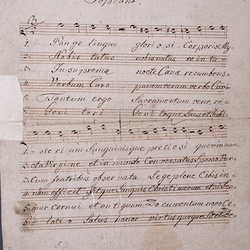 Soprano.
1. Pange lingua glorio si Corporis My
2. Nobis datus nobis natus ex in ta
3. In suprema nocte Cæna recumbens
4. Verbum Caro panem verum verbo Carn
5. Tantum ergo Sacramentum vene re
6. Geni tori Geni toque Laus et Jubi
1. ste ri um Sanguinisque pretio si quem in mun
2. cta Virgine et in mundo Conversatus sparso Ver
3. cum fratribus obser vata Lege plene Cibis in
4. nem effi cit fitque Sanguis Christi merum et si sen
5. mur cernui et antiquum Documentum novo Ce
6. latio Salus honor virtus quoque